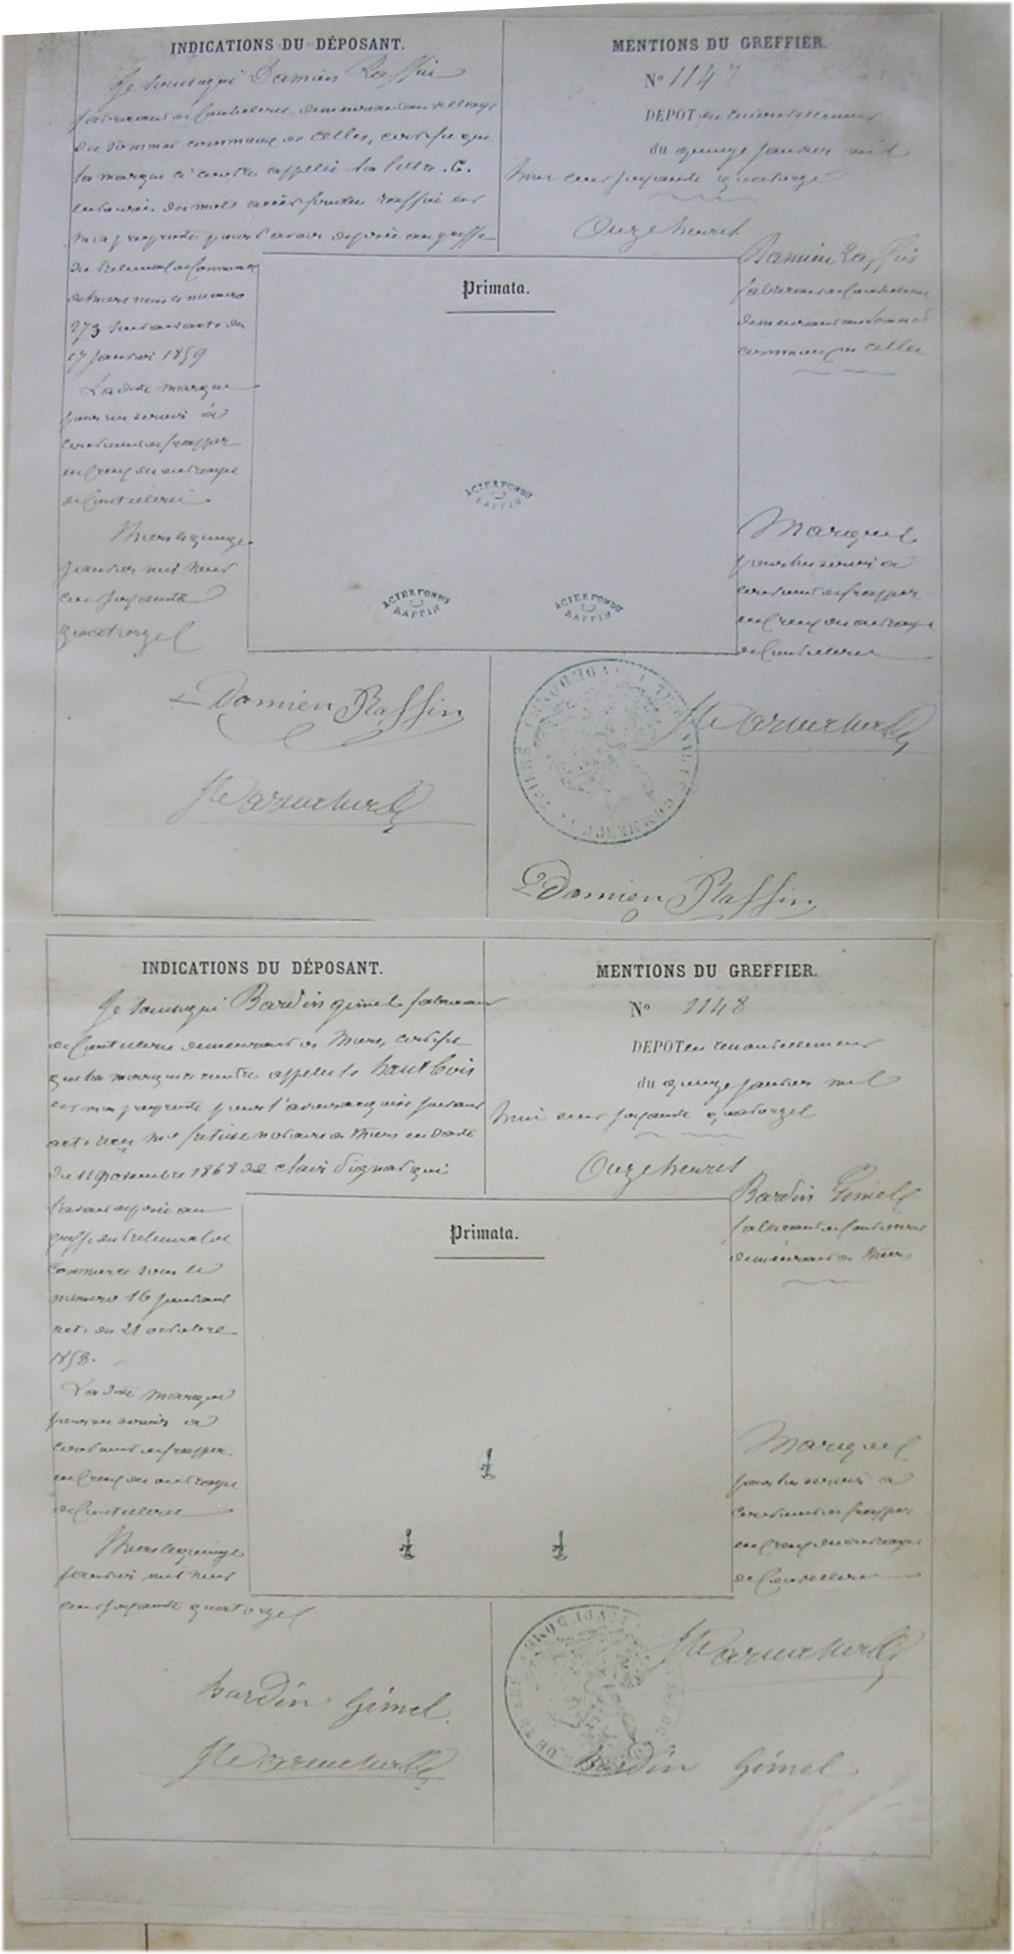 INDICATIONS DU DÉPOSANT.
Je soussigné Damien Raffin
fabricant de Coutellerie demeurant au village
du Sommet commune de Celles, certifie que
la marque ci contre appelée la lettre C.
entourée des mots acier fondu raffin est
ma propriété pour l'avoir déposée au greffe
du tribunal de Commerce
de thiers sous le numéro
273 suivant acte du
17 Janvier 1859
La dite marque
pour me servir à
continuer de frapper
en Creux des ouvrages
de Coutellerie.
Thiers le quinze
janvier mil huit
cent soixante
quatorze
Damien Raffin
MENTIONS DU GREFFIER.
No 1147
DEPOT en renouvellement
du quinze janvier mil
huit cent soixante quatorze
Onze heures
Damien Raffin
fabricant de Coutellerie
demeurant au Sommet
commune de Celles
Primata.
ACIER FONDU
C
RAFFIN
ACIER FONDU
C
RAFFIN
ACIER FONDU
C
RAFFIN
Marque
pour lui servir à
continuer de frapper
en Creux des ouvrages
de Coutellerie
Damien Raffin
INDICATIONS DU DÉPOSANT.
Je soussigné Bardin Gimel fabricant
de Coutellerie demeurant à Thiers, certifie
que la marque ci contre appelée le hautbois
est ma propriété pour l'avoir acquise suivant
acte reçu Me notaire à Thiers en date
du 11 novembre 1868 de Clair Dignat qui
l'avait déposée au
greffe du tribunal de
commerce sous le
numéro 16 suivant
acte du 21 octobre
1858.
La dite marque
pour me servir à
continuer de frapper
en Creux des ouvrages
de Coutellerie
Thiers le quinze
janvier mil huit
cent soixante quatorze
Bardin Gimel
MENTIONS DU GREFFIER.
No 1148
DEPOT en renouvellement
du quinze janvier mil
huit cent soixante quatorze
Onze heures
Bardin Gimel
fabricant de Coutellerie
demeurant à Thiers
Primata.
Marque
pour lui servir à
continuer de frapper
en Creux des ouvrages
de Coutellerie
Bardin Gimel